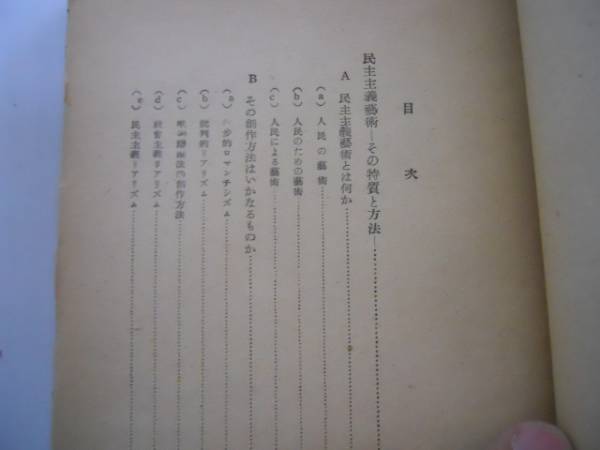 目次
民主主義藝術―その特質と方法―
A 民主主義藝術とは何か
(a) 人民の藝術
(b) 人民のための藝術
(c) 人民による藝術
B その創作方法はいかなるものか
(a) 歩的ロマンチシズム
(b) 批判的リアリズム
(c) 創作方法
(d) 社會主義リアリズム
(e) 民主主義リアリズム